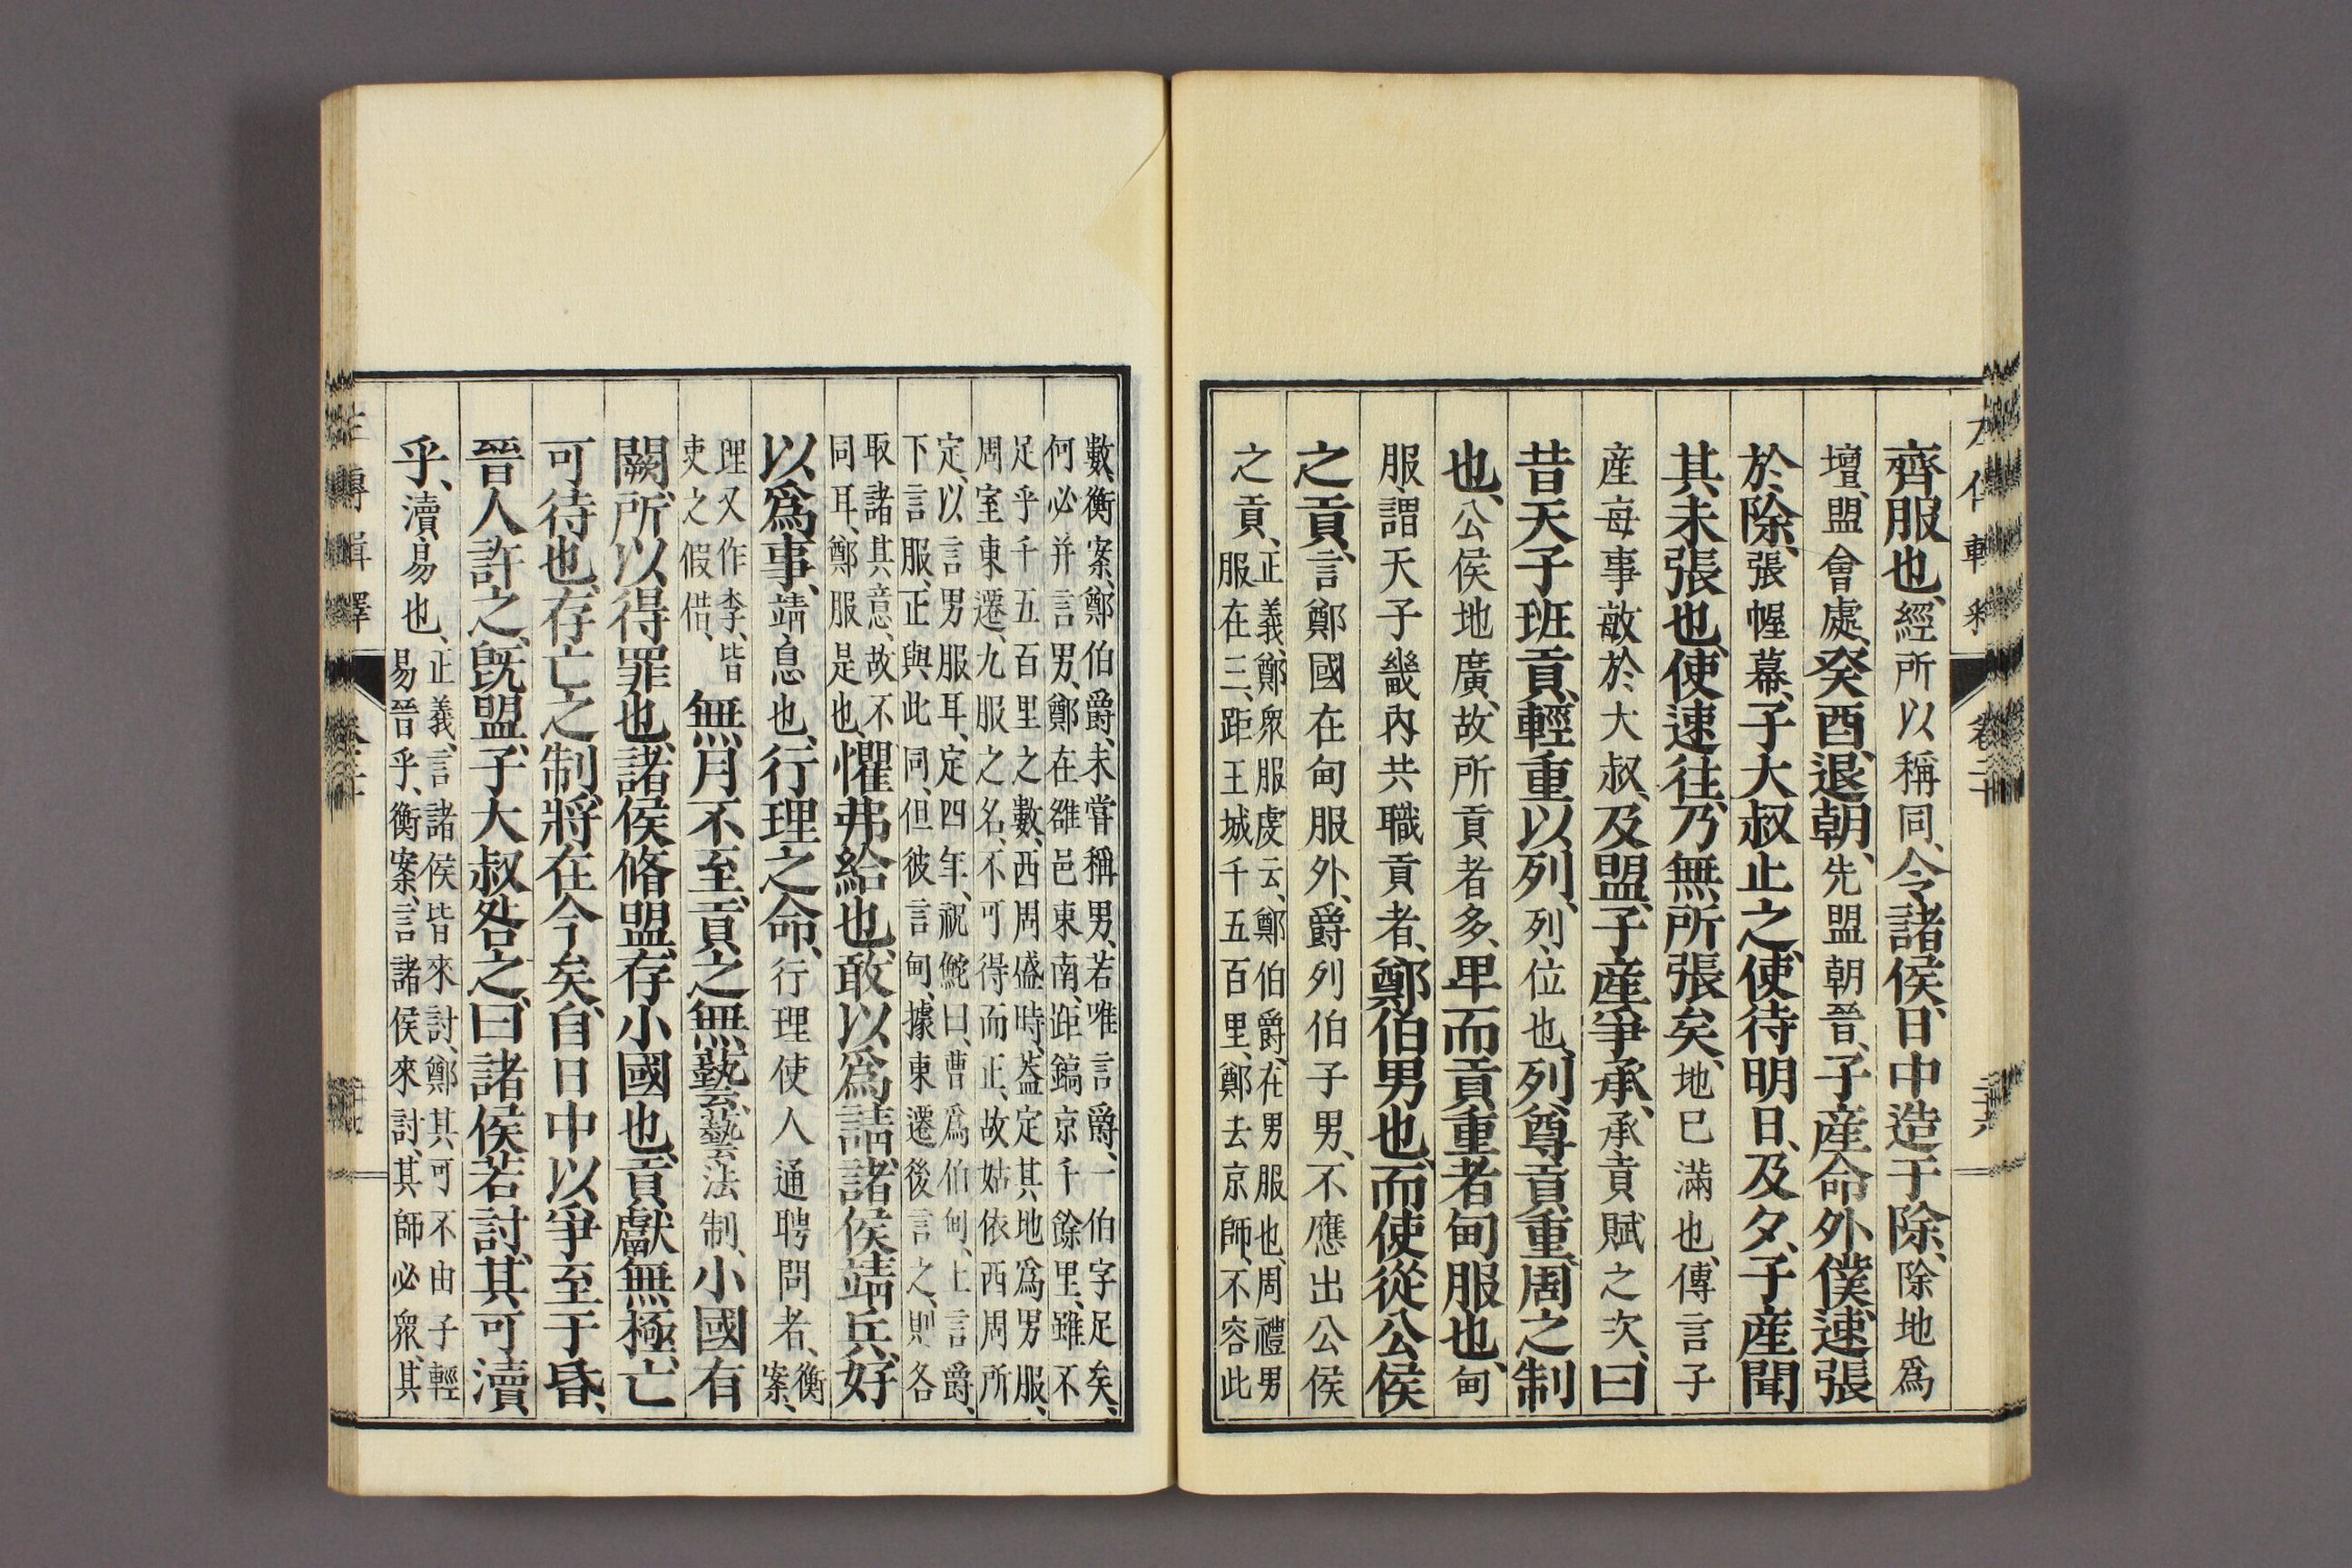 齊服也、經所以稱同、令諸侯、日中造于除、除地爲
壇、盟會處、癸酉、退朝、先盟朝晉、子產命外僕、速張
於除、張幄幕、子大叔止之、使待明日、及夕、子產聞
其未張也、使速往、乃無所張矣、地已滿也、傳言子
產每事敏於大叔、及盟、子產爭承、承貢賦之次、曰
昔天子班貢、輕重以列、列、位也、列尊貢重、周之制
也、公侯地廣、故所貢者多、卑而貢重者甸服也、甸
服、謂天子畿內共職貢者、鄭伯男也、而使從公侯
之貢、言鄭國在甸服外、爵列伯子男、不應出公侯
之貢、正義、鄭衆服虔云、鄭伯爵、在男服也、周禮男
服在三、距王城千五百里、鄭去京師、不容此
數、衡案、鄭伯爵、未嘗稱男、若唯言爵、一伯字足矣、
何必并言男、鄭在雒邑東南、距鎬京千餘里、雖不
足乎千五百里之數、西周盛時、葢定其地爲男服、
周室東遷、九服之名、不可得而正、故姑依西周所
定、以言男服耳、定四年、祝鮀曰、曹爲伯甸、上言爵、
下言服、正與此同、但彼言甸、據東遷後言之、則各
取諸其意、故不
同耳、鄭服是也、懼弗給也、敢以爲請、諸侯靖兵、好
以爲事、靖、息也、行理之命、行理使人通聘問者、衡
案、
理又作李、皆
吏之假借、無月不至、貢之無藝、藝法制、小國有
闕、所以得罪也、諸侯脩盟、存小國也、貢獻無極、亡
可待也、存亡之制、將在今矣、自日中以爭、至于昏、
晉人許之、旣盟、子大叔咎之、曰、諸侯若討、其可瀆
乎、瀆、易也、正義、言諸侯皆來討、鄭其可不由子輕
易晉乎、衡案、言諸侯來討、其師必衆、其